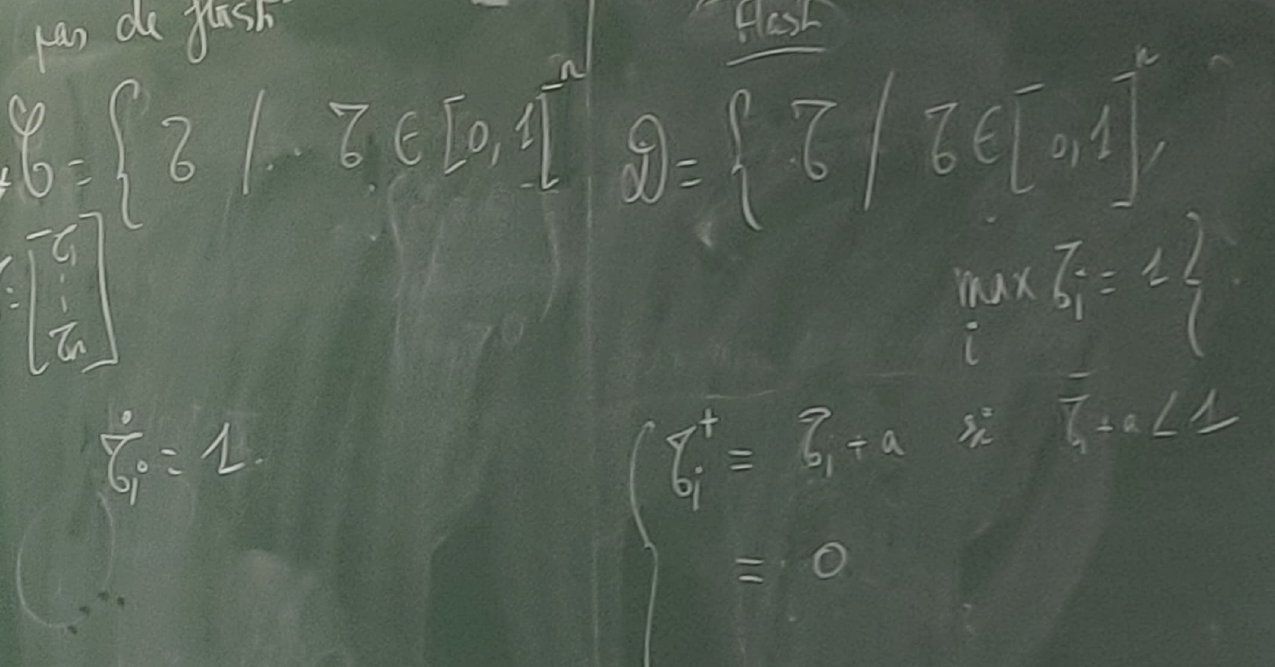 pas de flash
𝒞 = { τ / τ ∈ [0, 1[ⁿ
[τ₁ ⋮ τₙ]
τ̇ᵢ = 1.
flash
𝒟 = { τ / τ ∈ [0, 1]ⁿ,
max τᵢ = 1 }.
i
τᵢ⁺ = τᵢ + a si τᵢ + a < 1
= 0